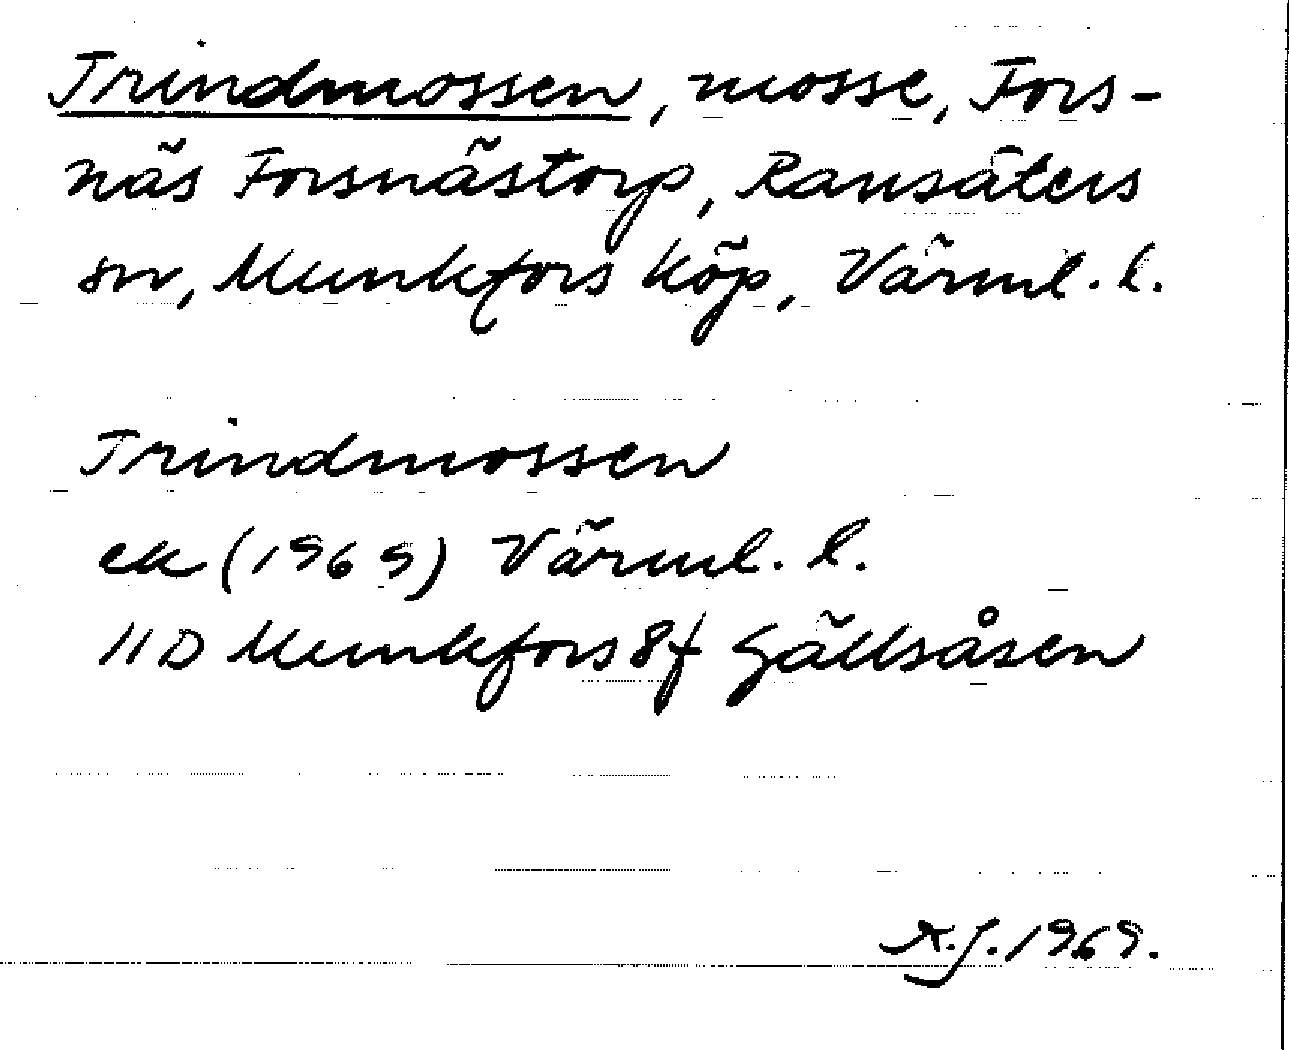 Trindmossen, mosse, Fors-
näs Forsnästorp, Ransäters
sn, Munkfors köp, Värml. l.
Trindmossen
ek (1969) Värml. l.
11D Munkfors 8f Gällsåsen
A.J. 1969.